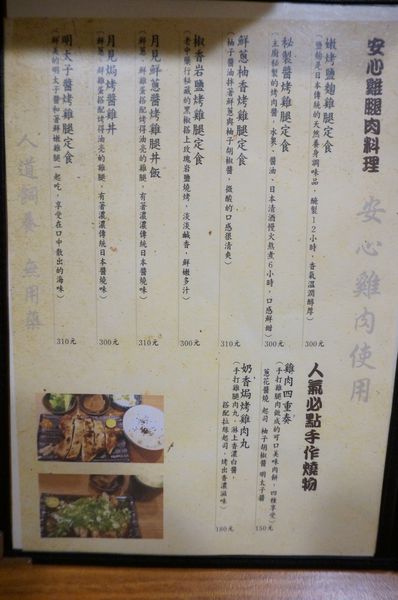 安心雞腿肉料理
安心雞肉使用
嫩烤鹽麴雞腿定食
(鹽麴是日本傳統的天然養身調味品,醃製12小時,香氣溫潤醇厚)
300元
秘製醬烤雞腿定食
(主廚秘製的烤肉醬,水梨、醬油、日本清酒慢火熬煮6小時,口感鮮甜)
300元
鮮蔥柚香烤雞腿定食
(柚子醬油拌著鮮蔥與柚子胡椒醬,微酸的口感很清爽)
310元
椒香岩鹽烤雞腿定食
(老中藥行秘藏的黑椒搭上玫瑰岩鹽燒烤,淡淡鹹香,鮮嫩多汁)
300元
月見鮮蔥醬烤雞腿丼飯
(鮮蔥、鮮雞蛋搭配烤得油亮的雞腿,有著濃濃傳統日本醬燒味)
310元
月見焗烤醬雞丼
(鮮雞蛋搭配烤得油亮的雞腿,有著濃濃傳統日本醬燒味)
300元
明太子醬烤雞腿定食
(鮮美的明太子醬和著鮮嫩雞腿一起吃,享受在口中散出的海味)
310元
人道飼養 無用藥
人氣必點手作燒物
雞肉四重奏
(手打雞腿肉做成的可口美味肉餅,四種享受)
蔥花醬燒 起司 柚子胡椒醬 明太子醬
150元
奶香焗烤雞肉丸
(手打雞腿肉丸,淋上香濃白醬,
搭配拉絲起司,烤出香濃滋味)
180元